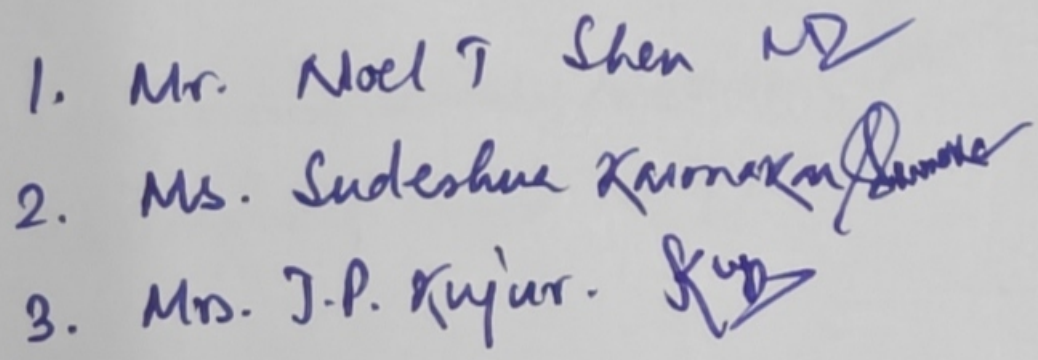 1. Mr. Noel T Shen
2. Ms. Sudeshna Karmakar
3. Mrs. J.P. Kujur.